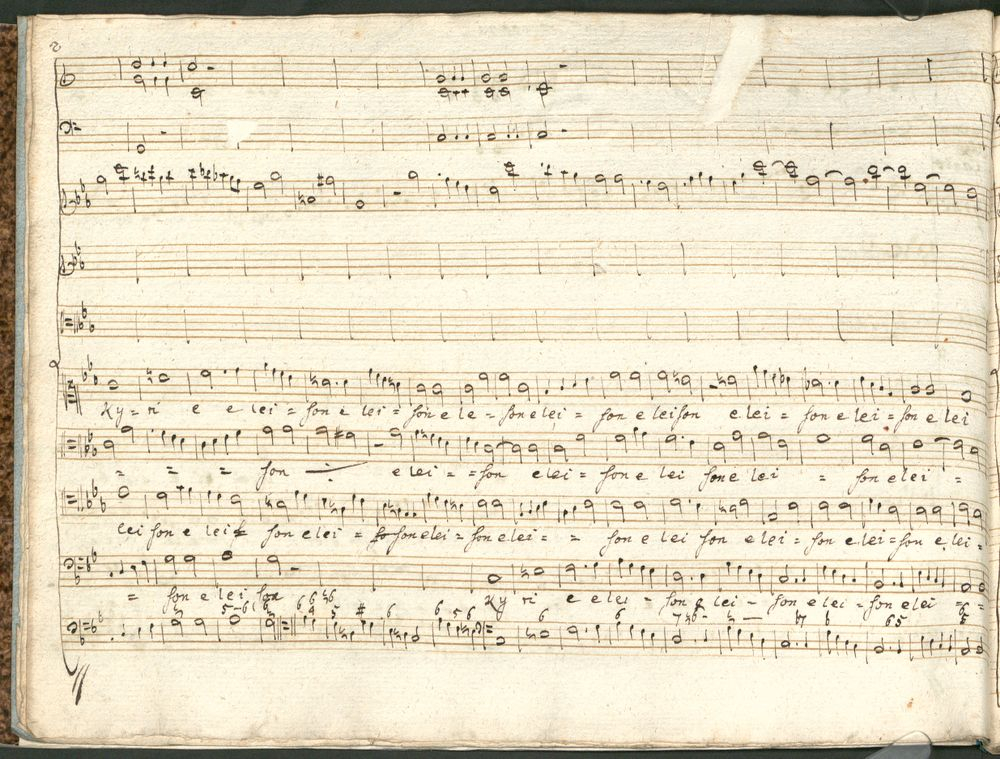 2
Ky = ri e e lei = son e lei = son e le = son e lei = son e lei son e lei = son e lei = son e lei
= = = son e lei = = son e lei = son e lei son e lei = son e lei =
lei son e lei = son e lei = son e lei = son e lei = = son e lei son e lei = son e lei = son e lei =
= son e lei son Ky ri e e lei = son e lei = son e lei = son e lei =
5-6 6 6 6 5 # 6 6 5 6 6 6 7 6 5